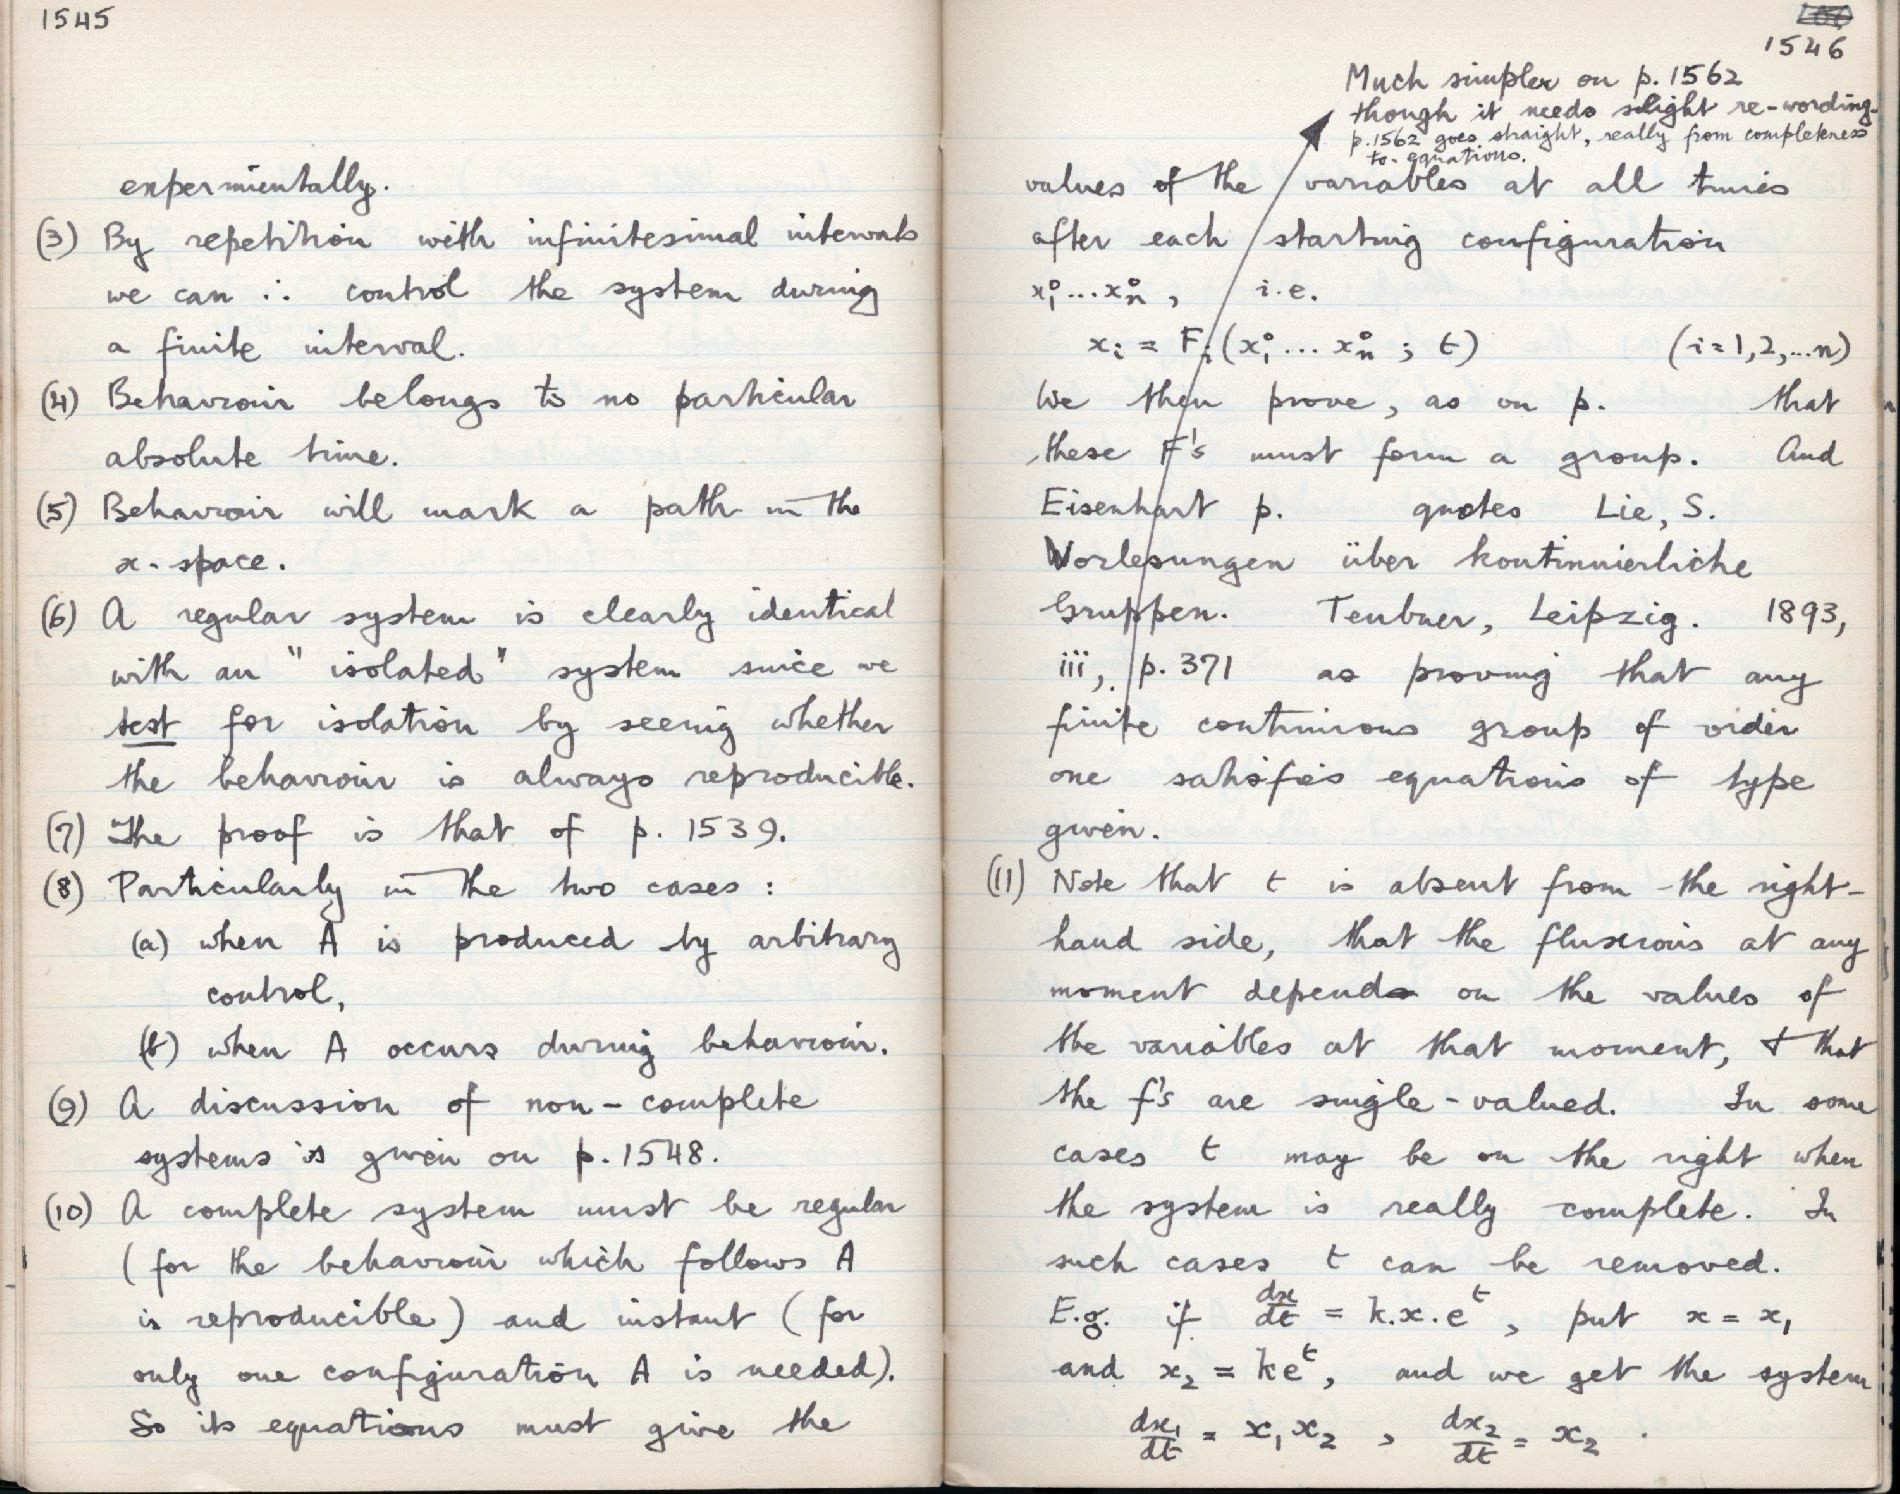 1545
expermientally.
(3) By repetition with infinitesimal intervals
we can ∴ control the system during
a finite interval.
(4) Behaviour belongs to no particular
absolute time.
(5) Behaviour will mark a path in the
x-space.
(6) A regular system is clearly identical
with an "isolated" system since we
test for isolation by seeing whether
the behaviour is always reproducible.
(7) The proof is that of p. 1539.
(8) Particularly in the two cases:
(a) when A is produced by arbitrary
control,
(b) when A occurs during behaviour.
(9) A discussion of non-complete
systems is given on p. 1548.
(10) A complete system must be regular
(for the behaviour which follows A
is reproducible) and instant (for
only one configuration A is needed).
So its equations must give the
1546
Much simpler on p. 1562
though it needs slight re-wording.
p. 1562 goes straight, really from completeness
to equations.
values of the variables at all times
after each starting configuration
x₁⁰...xₙ⁰, i.e.
xᵢ = Fᵢ(x₁⁰...xₙ⁰; t) (i=1,2,...n)
We then prove, as on p. that
these F's must form a group. And
Eisenhart p. quotes Lie, S.
Vorlesungen über kontinuierliche
Gruppen. Teubner, Leipzig. 1893,
iii, p. 371 as proving that any
finite continuous group of order
one satisfies equations of type
given.
(11) Note that t is absent from the right-
hand side, that the fluxions at any
moment depends on the values of
the variables at that moment, + that
the f's are single-valued. In some
cases t may be on the right when
the system is really complete. In
such cases t can be removed.
E.g. if dx/dt = k.x.eᵗ, put x = x₁
and x₂ = keᵗ, and we get the system
dx₁/dt = x₁x₂, dx₂/dt = x₂.